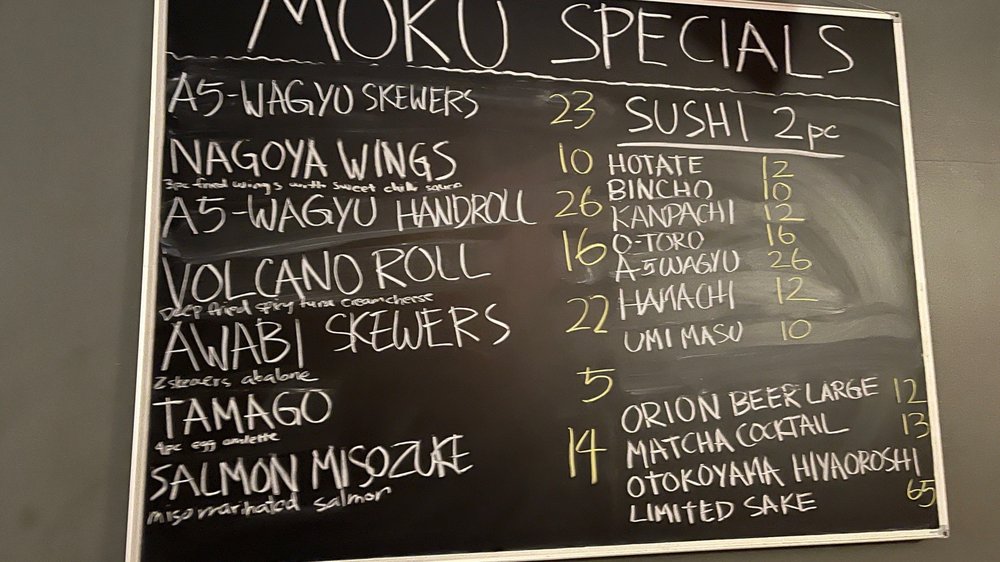 MOKU SPECIALS
A5-WAGYU SKEWERS 23
NAGOYA WINGS 10
3pc fried wings with sweet chili sauce
A5-WAGYU HANDROLL 26
VOLCANO ROLL 16
Deep fried spicy tuna creamcheese
AWABI SKEWERS 22
2 skewers abalone
TAMAGO 5
4pc egg omlette
SALMON MISOZUKE 14
miso marinated salmon
SUSHI 2pc
HOTATE 12
BINCHO 10
KANPACHI 12
O-TORO 16
A5 WAGYU 26
HAMACHI 12
UMI MASU 10
ORION BEER LARGE 12
MATCHA COCKTAIL 13
OTOKOYAMA HIYAOROSHI
LIMITED SAKE 65